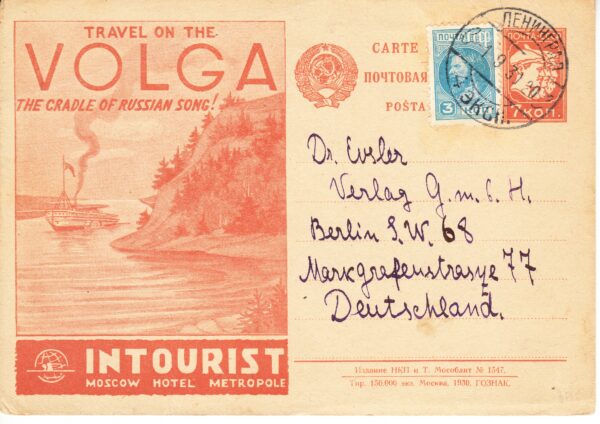 TRAVEL ON THE
VOLGA
THE CRADLE OF RUSSIAN SONG!
INTOURIST
MOSCOW HOTEL METROPOLE
CARTE
ПОЧТОВАЯ
POŜTA
ПОЧТА
3
ЛЕНИНГРАД
9 30
ЭКСП.
ПОЧТА
7 КОП.
Dr. Eysler
Verlag G.m.b.H.
Berlin S.W. 68
Markgrafenstrasze 77
Deutschland.
Издание НКП и Т. Мособлит № 1547.
Тир. 150.000 экз. Москва, 1930. ГОЗНАК.